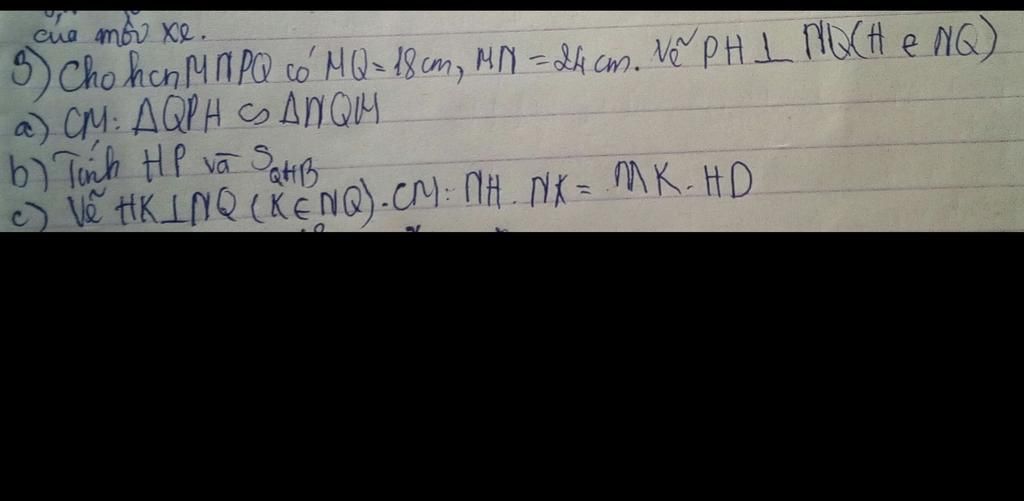 của mỗi xe.
3) Cho hcn MNPQ có MQ = 18 cm, MN = 24 cm. Vẽ PH ⊥ NQ (H ∈ NQ)
a) CM: ΔQPH ∽ ΔNQM
b) Tính HP và S_QHB
c) Vẽ HK ⊥ NQ (K ∈ NQ). CM: NH. NK = MK. HD